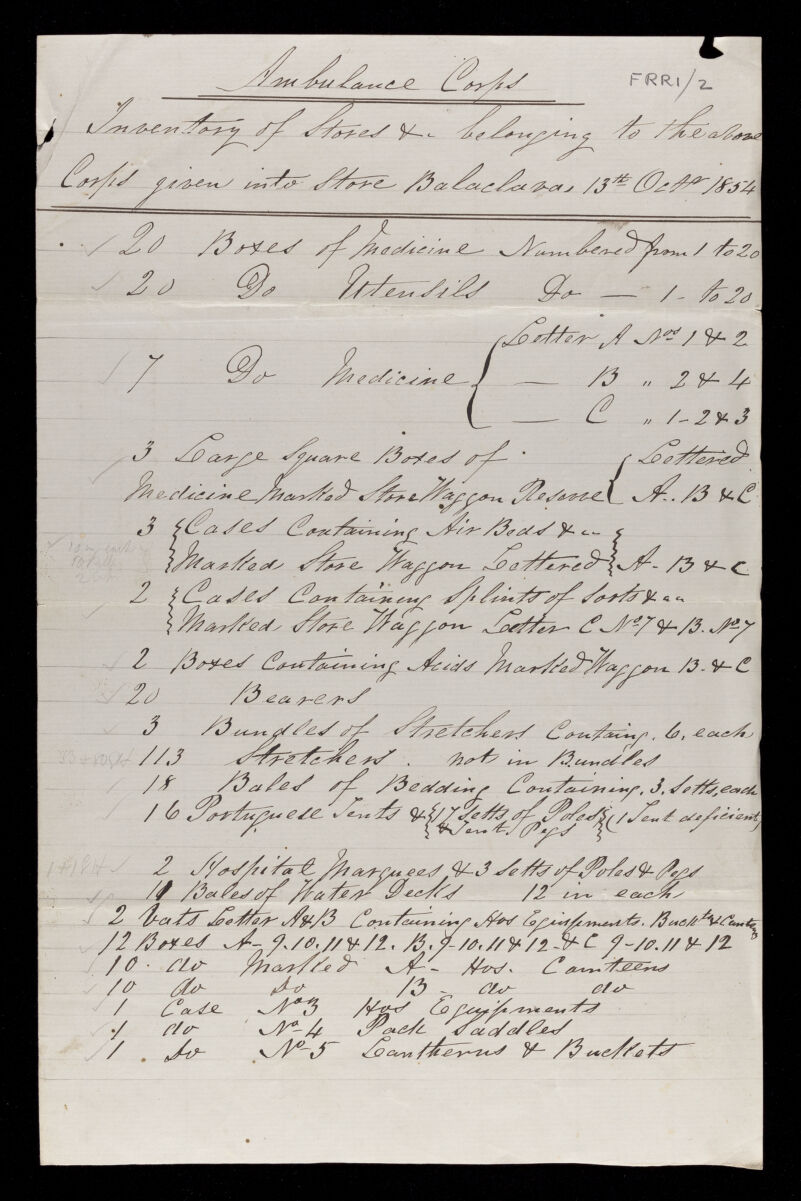 Ambulance Corps
FRR1/2
Inventory of Stores &c belonging to the above
Corps given into Store Balaclava, 13th Octr 1854
20 Boxes of Medicine Numbered from 1 to 20
20 Do Utensils Do — 1 - to 20
Letter A Nos 1 & 2
7 Do Medicine { — B " 2 & 4
— C " 1 - 2 & 3
3 Large Square Boxes of { Lettered
Medicine Marked Store Waggon Reserve A. B & C
3 { Cases Containing Air Beds &c }
Marked Store Waggon Lettered A - B & C
2 { Cases Containing Splints of Sorts &c
Marked Store Waggon Letter C No 7 & B. No 7
2 Boxes Containing Acids Marked Waggon B. & C
20 Bearers
3 Bundles of Stretchers Containg. 6, each
113 Stretchers. not in Bundles
18 Bales of Bedding Containing. 3. Setts, each
16 Portuguese Tents & { 17 Setts of Poles } (1 Tent deficient)
& Tent. Pegs
2 Hospital Marquees & 3 Setts of Poles & Pegs
11 Bales of Water Decks 12 in each
2 Vats Letter A & B Containing Hos Equipments. Buckts & Canteens
12 Boxes A - 9. 10. 11 & 12. B. 9 - 10. 11 & 12 - & C 9 - 10. 11 & 12
10. do Marked A - Hos. Canteens
10 do Do B - do do
1 Case No 3 Hos Equipments
1 do No 4 Pack Saddles
1 Do No 5 Lantherns & Buckets